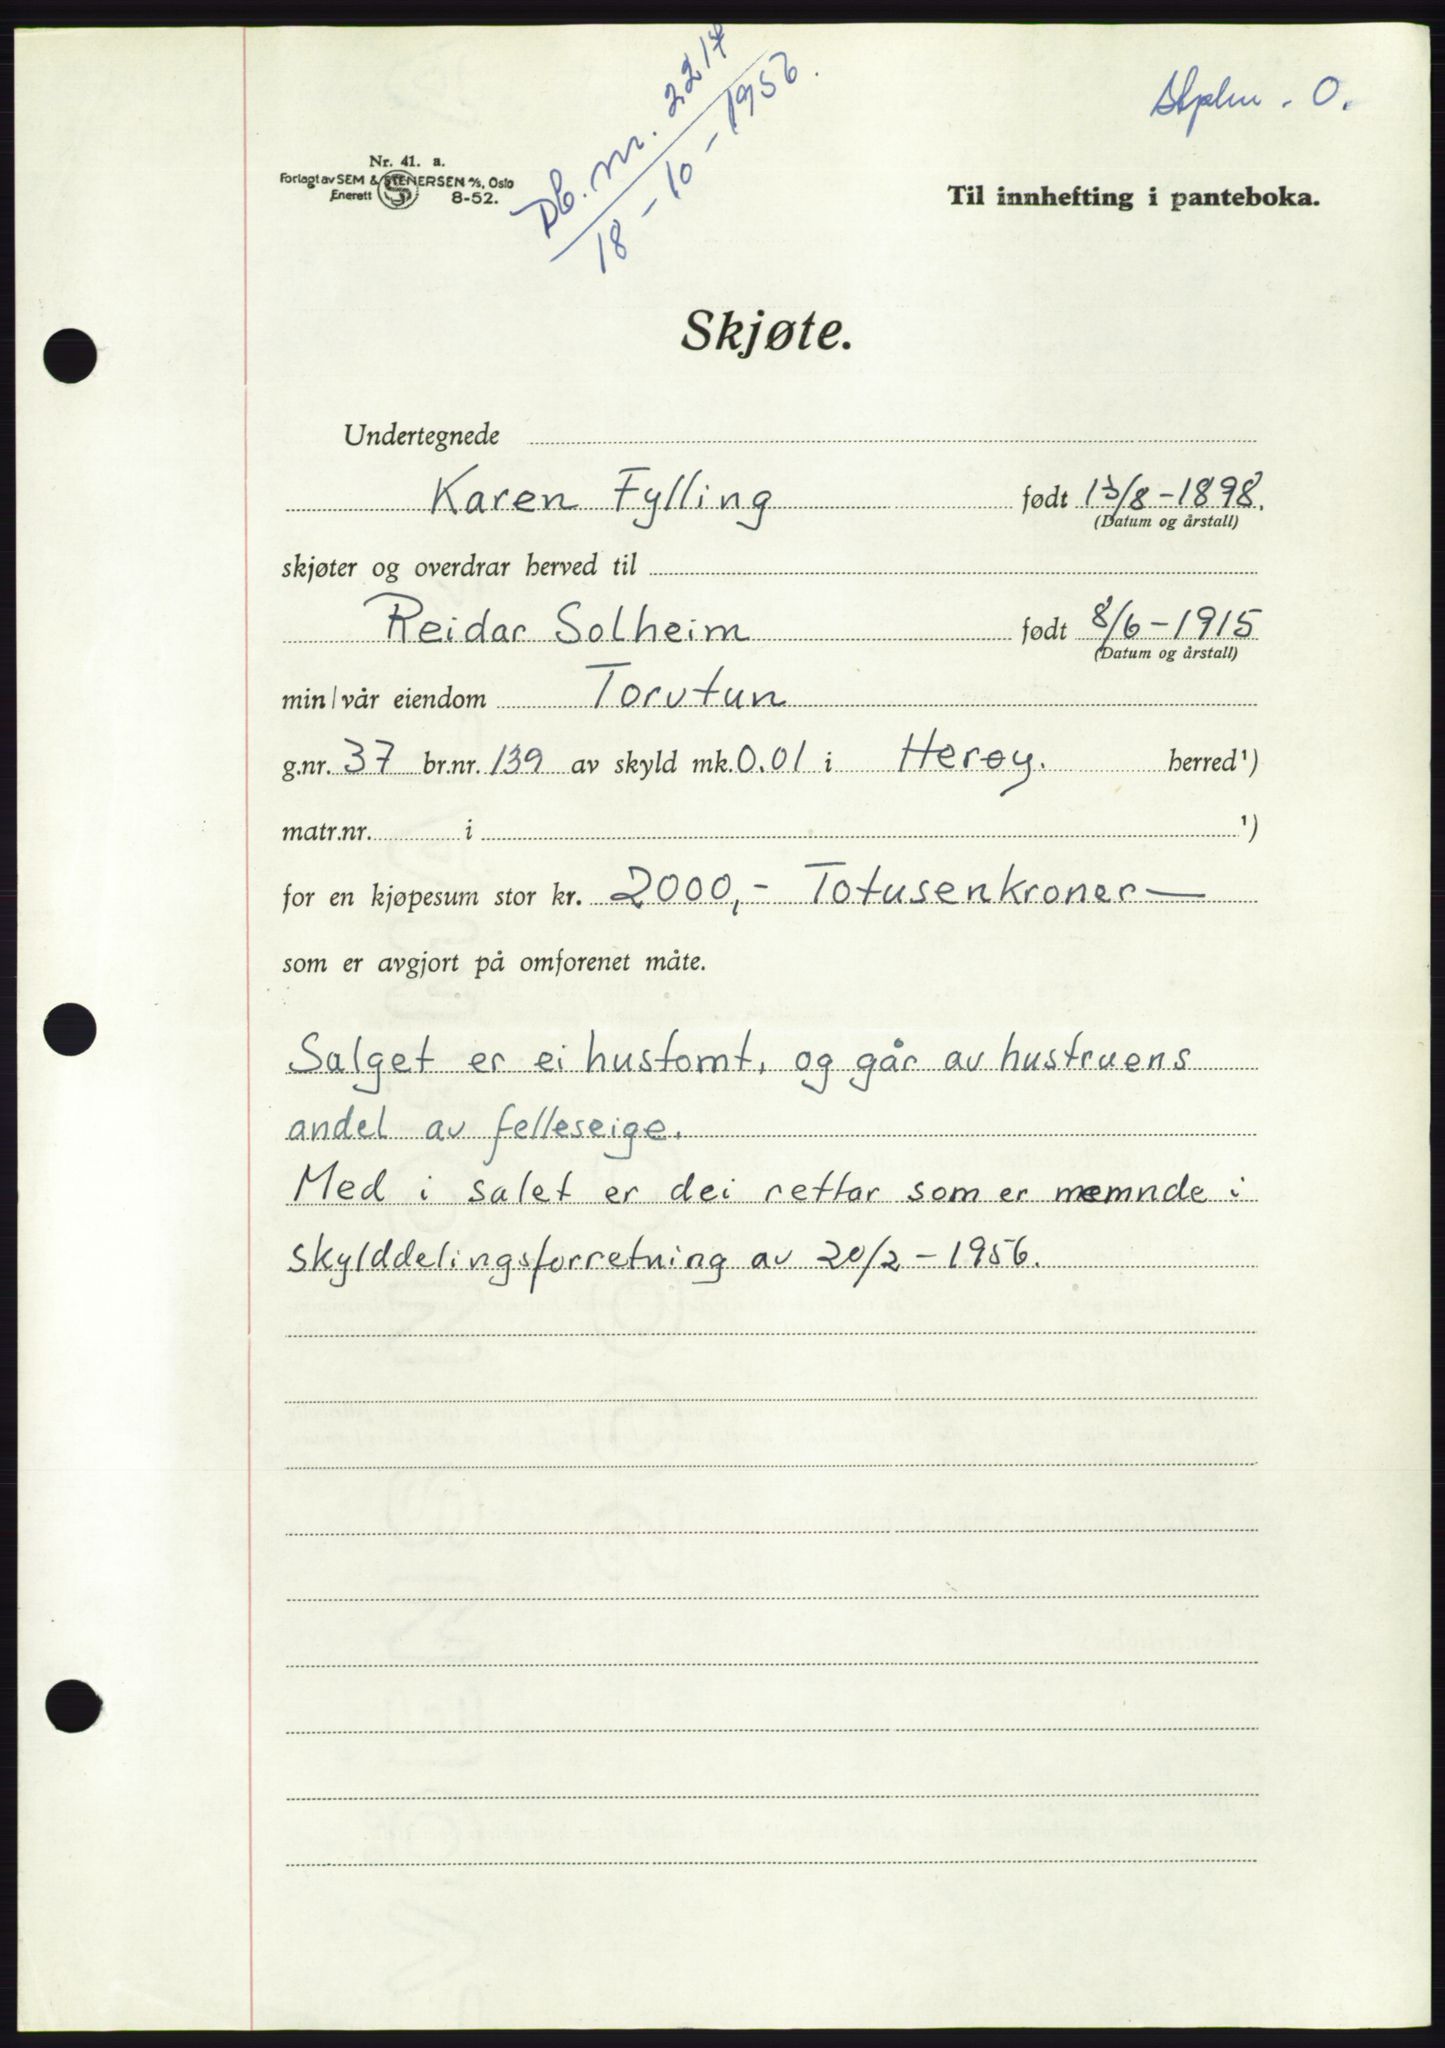 Db. nr. 2217
18-10-1956.
- 0.
Nr. 41. a.
Forlagt av SEM & STENERSEN A/S, Oslo
Enerett S 8-52.
Til innhefting i panteboka.
Skjøte.
Undertegnede
Karen Fylling født 13/8-1898.
(Datum og årstall)
skjøter og overdrar herved til
Reidar Solheim født 8/6-1915
(Datum og årstall)
min/vår eiendom Torvtun
g.nr. 37 br.nr. 139 av skyld mk. 0.01 i Herøy. herred¹)
matr.nr. i ¹)
for en kjøpesum stor kr. 2000,- Totusenkroner—
som er avgjort på omforenet måte.
Salget er ei hustomt, og går av hustruens
andel av felleseige.
Med i salet er dei rettar som er memnde i
skylddelingsforretning av 20/2-1956.